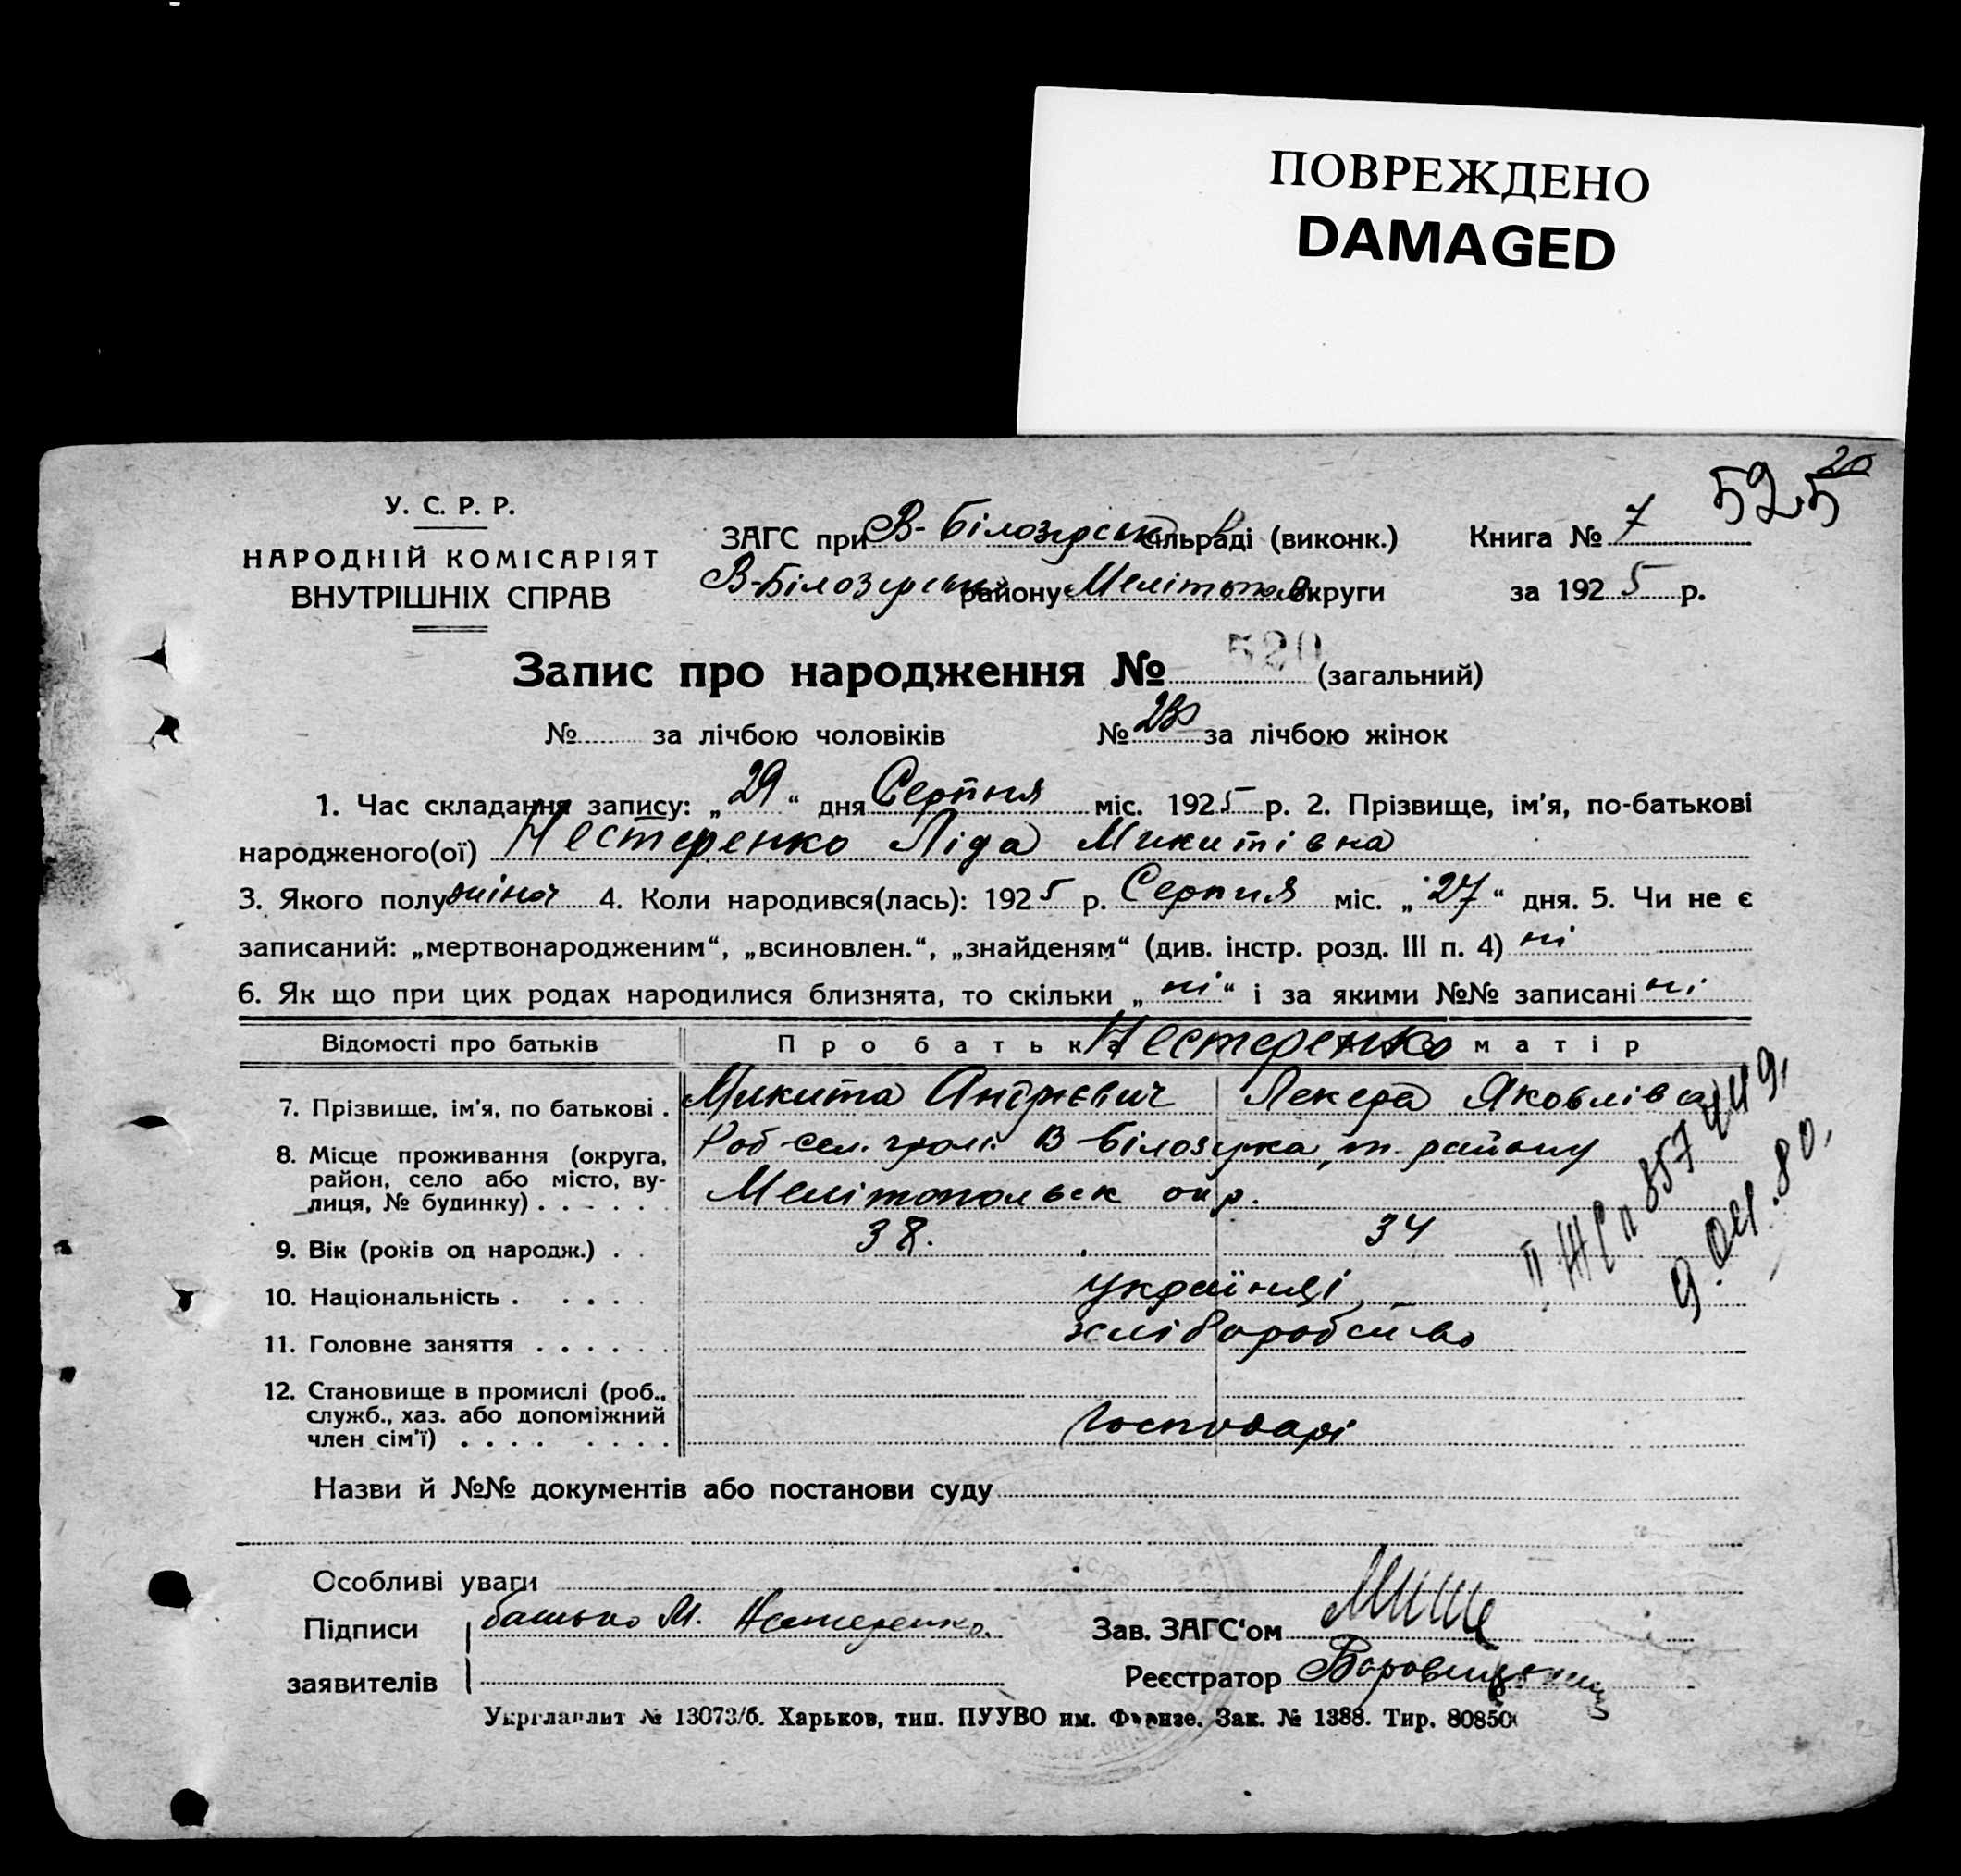 ПОВРЕЖДЕНО
DAMAGED
20
525
У. С. Р. Р.
НАРОДНІЙ КОМІСАРІЯТ
ВНУТРІШНІХ СПРАВ
ЗАГС при В-Білозірськ сільраді (виконк.)
В-Білозірськ району Мелітопол округи
Книга № 7
за 1925 р.
Запис про народження № 520 (загальний)
№ за лічбою чоловіків № 230 за лічбою жінок
1. Час складання запису: „29“ дня Серпня міс. 1925 р. 2. Прізвище, ім'я, по-батькові
народженого(ої) Нестеренко Ліда Микитівна
3. Якого полу жіноч 4. Коли народився(лась): 1925 р. Серпня міс. „27“ дня. 5. Чи не є
записаний: „мертвонародженим“, „всиновлен.“, „знайденям“ (див. інстр. розд. III п. 4) ні
6. Як що при цих родах народилися близнята, то скільки „ні“ і за якими №№ записані ні
Відомості про батьків Про батьк Нестеренко матір
7. Прізвище, ім'я, по батькові . Микита Андрієвич Лекера Яковлівна
8. Місце проживання (округа,
район, село або місто, ву-
лиця, № будинку) . . . . . .
В Білозірка, т. району
Мелітопольск окр.
9. Вік (років од народж.) . . 38. 34
10. Національність . . . . . українці
11. Головне заняття . . . . . . хліборобство
12. Становище в промислі (роб.,
служб., хаз. або допоміжний
член сім'ї) . . . . . . . . Господарі
857
80.
Назви й №№ документів або постанови суду
Особливі уваги
Підписи батько М. Нестеренко. Зав. ЗАГС‘ом
заявителів Реєстратор
Укрглавлит № 13073/б. Харьков, тип. ПУУВО им. Фрунзе. Зак. № 1388. Тир. 80850